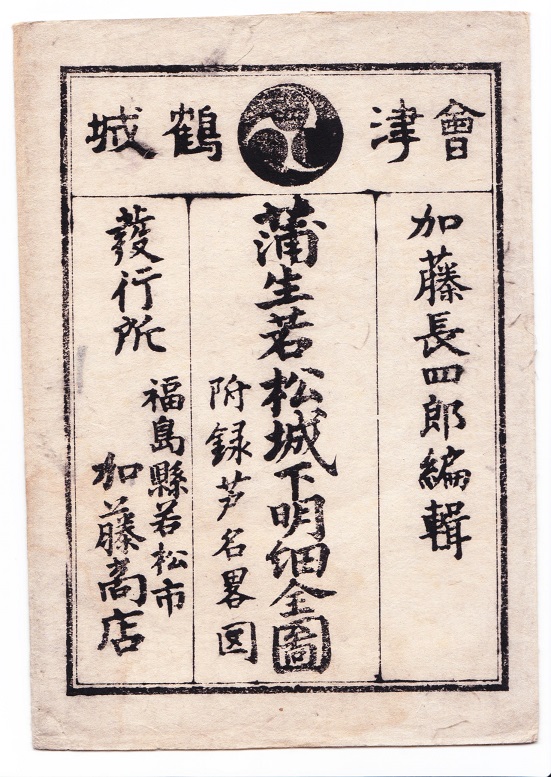 會津鶴城
加藤長四郎編輯
蒲生若松城下明细全圖
附録芦名畧図
發行所
福島縣若松市
加藤商店